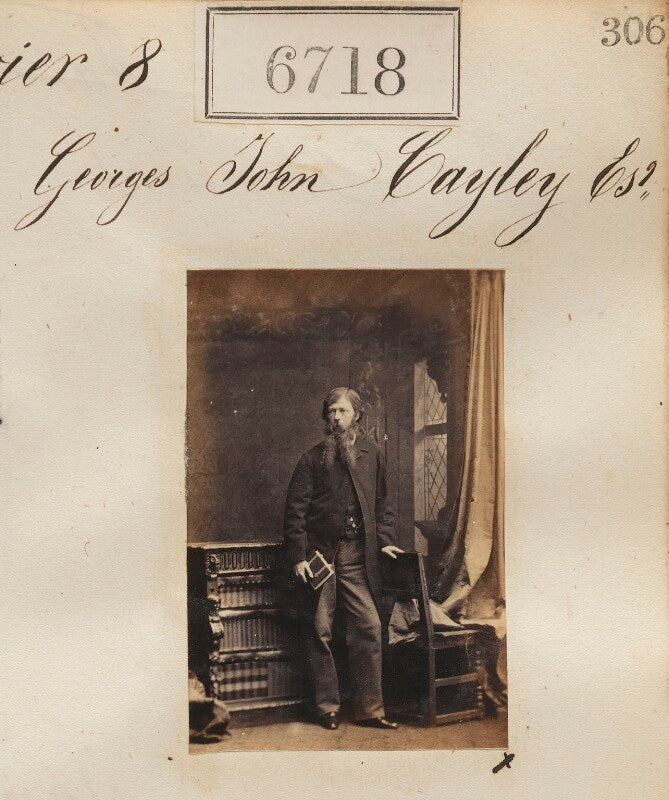 8
6718
306
Georges John Cayley Esq.